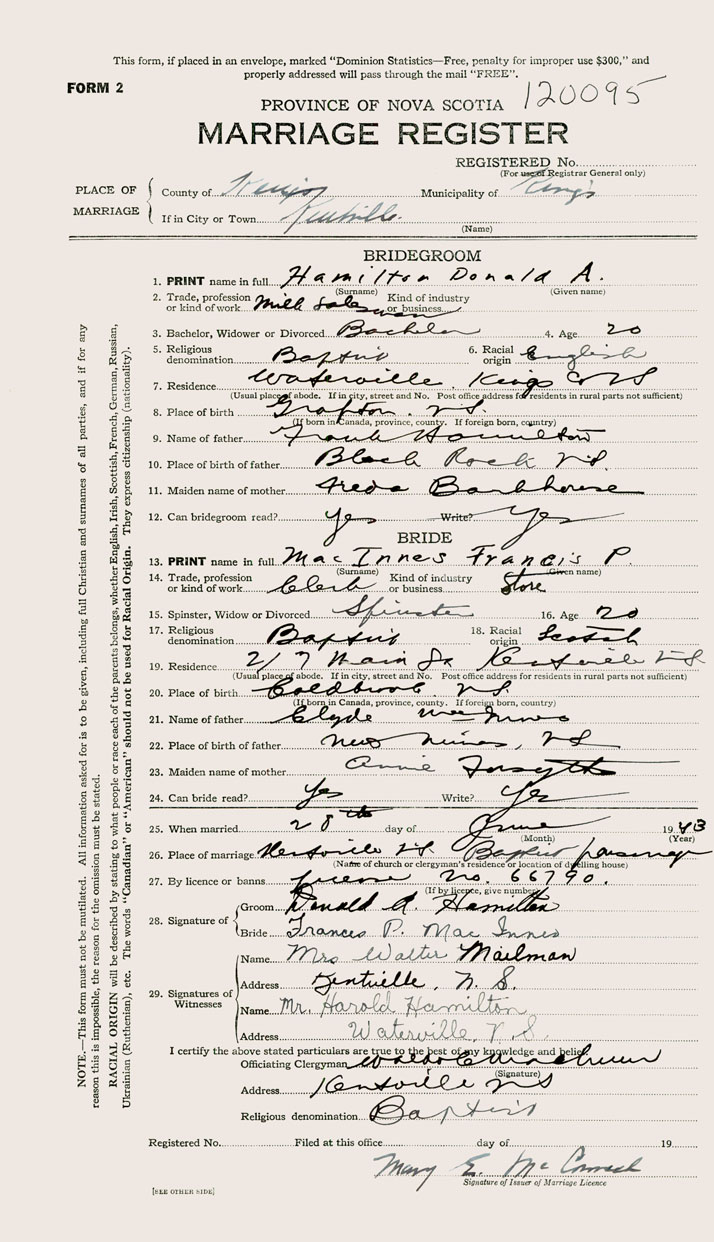 This form, if placed in an envelope, marked "Dominion Statistics—Free, penalty for improper use $300," and
properly addressed will pass through the mail "FREE".
FORM 2
PROVINCE OF NOVA SCOTIA 120095
MARRIAGE REGISTER
REGISTERED No.
(For use of Registrar General only)
PLACE OF MARRIAGE
County of Kings Municipality of Kings
If in City or Town Kentville
(Name)
BRIDEGROOM
1. PRINT name in full Hamilton Donald A.
(Surname) (Given name)
2. Trade, profession or kind of work Mill Salesman Kind of industry or business
3. Bachelor, Widower or Divorced Bachelor 4. Age 20
5. Religious denomination Baptist 6. Racial origin English
7. Residence Waterville Kings Co NS
(Usual place of abode. If in city, street and No. Post office address for residents in rural parts not sufficient)
8. Place of birth Grafton N.S.
(If born in Canada, province, county. If foreign born, country)
9. Name of father Frank Hamilton
10. Place of birth of father Black Rock N.S.
11. Maiden name of mother Freda Barkhouse
12. Can bridegroom read? Yes Write? Yes
BRIDE
13. PRINT name in full MacInnes Francis P.
(Surname) (Given name)
14. Trade, profession or kind of work Clerk Kind of industry or business Store
15. Spinster, Widow or Divorced Spinster 16. Age 20
17. Religious denomination Baptist 18. Racial origin Scotch
19. Residence 217 Main St Kentville NS
(Usual place of abode. If in city, street and No. Post office address for residents in rural parts not sufficient)
20. Place of birth Coldbrook N.S.
(If born in Canada, province, county. If foreign born, country)
21. Name of father Clyde MacInnes
22. Place of birth of father New Minas, NS
23. Maiden name of mother Annie Forsythe
24. Can bride read? Yes Write? Yes
25. When married 28th day of June 1943
(Month) (Year)
26. Place of marriage Kentville N.S. Baptist parsonage
(Name of church or clergyman's residence or location of dwelling house)
27. By licence or banns License No. 66790.
(If by licence, give number)
28. Signature of
Groom Donald A. Hamilton
Bride Frances P. Mac Innes
29. Signatures of Witnesses
Name Mrs Walter Mailman
Address Kentville, N. S.
Name Mr. Harold Hamilton
Address Waterville, N.S.
I certify the above stated particulars are true to the best of my knowledge and belief.
Officiating Clergyman
(Signature)
Address Kentville NS
Religious denomination Baptist
Registered No. Filed at this office day of 19
Mary E. McCormack
Signature of Issuer of Marriage Licence
[SEE OTHER SIDE]
NOTE.—This form must not be mutilated. All information asked for is to be given, including full Christian and surnames of all parties, and if for any
reason this is impossible, the reason for the omission must be stated.
RACIAL ORIGIN will be described by stating to what people or race each of the parents belongs, whether English, Irish, Scottish, French, German, Russian,
Ukrainian (Ruthenian), etc. The words "Canadian" or "American" should not be used for Racial Origin. They express citizenship (nationality).